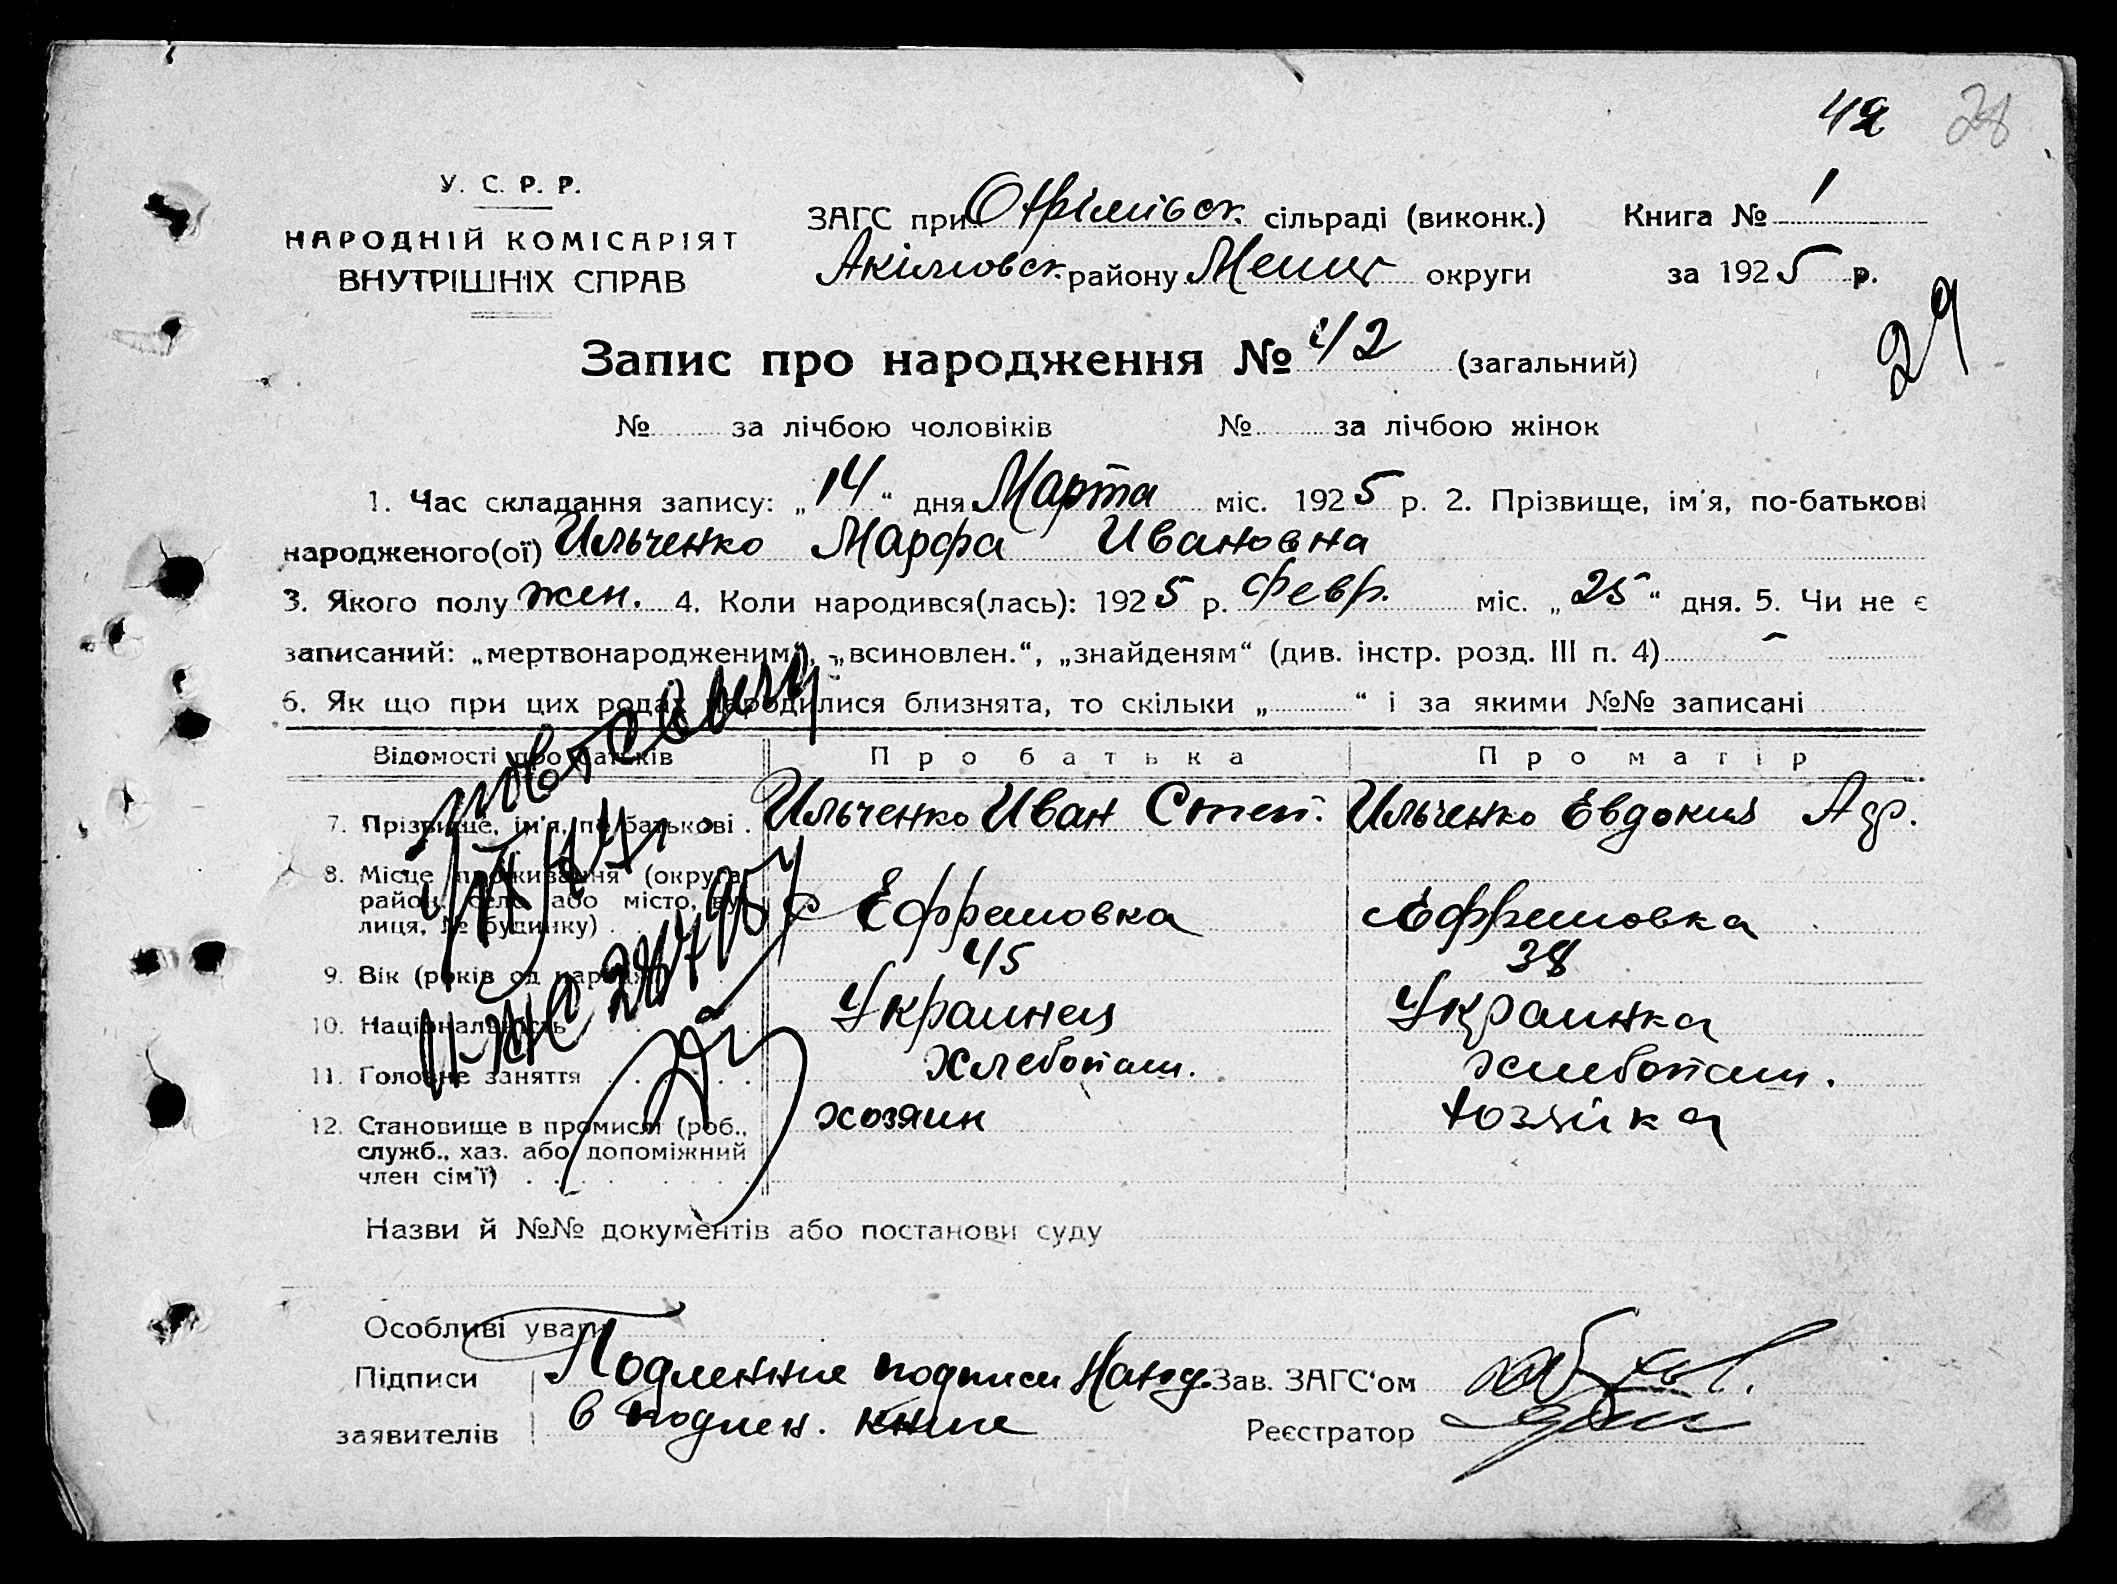 42 28
У. С. Р. Р.
НАРОДНІЙ КОМІСАРІЯТ
ВНУТРІШНІХ СПРАВ
ЗАГС при сільраді (виконк.) Книга № 1
Акимовск. району Мелит округи за 1925 р.
29
Запис про народження № 42 (загальний)
№ за лічбою чоловіків № за лічбою жінок
1. Час складання запису: „14“ дня Марта міс. 1925 р. 2. Прізвище, ім'я, по-батькові
народженого(ої) Ильченко Марфа Ивановна
3. Якого полу жен. 4. Коли народився(лась): 1925 р. Февр. міс. „25“ дня. 5. Чи не є
записаний: „мертвонародженим“, „всиновлен.“, „знайденям“ (див. інстр. розд. III п. 4) –
6. Як що при цих родах народилися близнята, то скільки „ “ і за якими №№ записані
Відомості про батьків Про батька Про матір
7. Прізвище, ім'я, по батькові . Ильченко Иван Степ. Ильченко Евдокия Адр.
8. Місце проживання (округа,
район, село або місто, ву-
лиця, № будинку) . . Ефремовка Ефремовка
9. Вік (років од народж.) 45 38
10. Національність Украинец Украинка
11. Головне заняття . . . . . Хлебопаш. хлебопаш.
12. Становище в промислі (роб.,
служб., хаз. або допоміжний
член сім'ї) . . . . . . . хозяин хозяйка
Назви й №№ документів або постанови суду
Особливі уваги
Підписи Подленние подписи наход. Зав. ЗАГС'ом
заявителів в подлен. книге Реєстратор